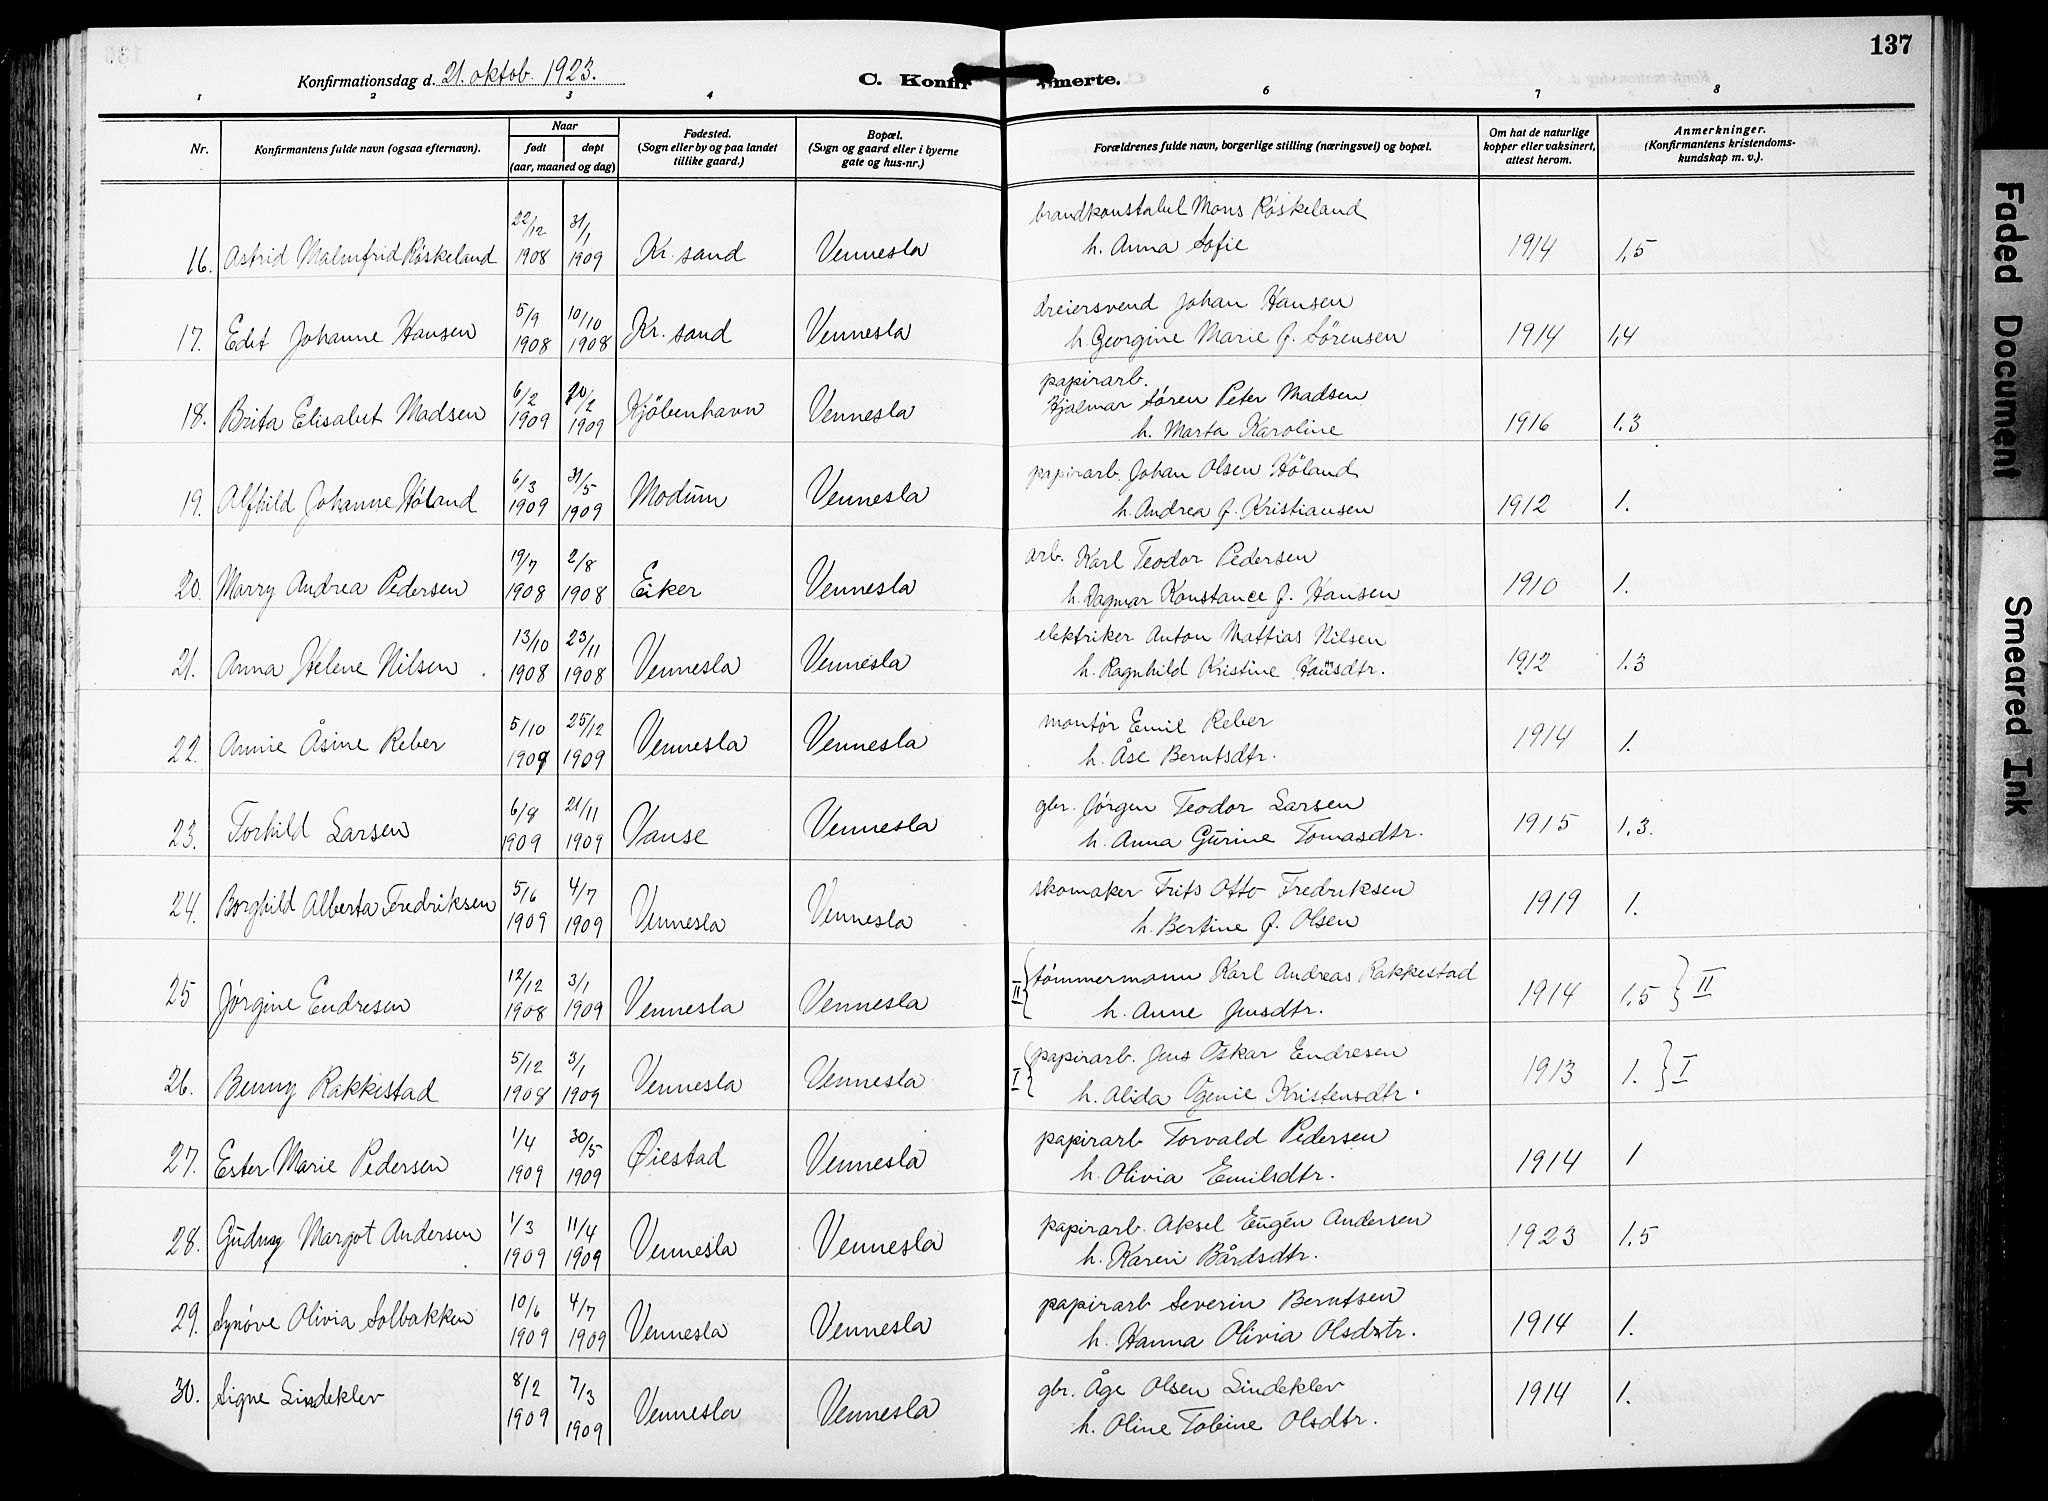 137
Konfirmationsdag d. 21. oktob. 1923.
C. Konfir merte.
1 2 3 4 5 6 7 8
Nr.
Konfirmantens fulde navn (ogsaa efternavn).
Naar
født døpt
(aar, maaned og dag)
Fødested.
(Sogn eller by og paa landet
tillike gaard.)
Bopæl.
(Sogn og gaard eller i byerne
gate og hus-nr.)
Forældrenes fulde navn, borgerlige stilling (næringsvei) og bopæl.
Om hat de naturlige
kopper eller vaksinert,
attest herom.
Anmerkninger.
(Konfirmantens kristendoms-
kundskap m. v.).
22/12 31/1 brandkonstabel Mons Røskeland
16. Astrid Malmfrid Røskeland 1908 1909 Kr. sand Vennesla h. Anna Sofie 1914 1,5
5/9 10/10 dreiersvend Johan Hansen
17. Edit Johanne Hansen 1908 1908 Kr. sand Vennesla h. Georgine Marie f. Sørensen 1914 1,4
papirarb.
6/2 20/2 Hjalmar Søren Peter Madsen
18. Brita Elisabet Madsen 1909 1909 Kjøbenhavn Vennesla h. Marta Karoline 1916 1.3
6/3 31/5 papirarb. Johan Olsen Høland
19. Alfhild Johanne Høland 1909 1909 Modum Vennesla h. Andrea f. Kristiansen 1912 1.
19/7 2/8 arb. Karl Teodor Pedersen
20. Marry Andrea Pedersen 1908 1908 Eiker Vennesla h. Dagmar Konstance f. Hansen 1910 1.
13/10 23/11 elektriker Anton Mattias Nilsen
21. Anna Helene Nilsen 1908 1908 Vennesla Vennesla h. Ragnhild Kristine Hansdtr. 1912 1.3
5/10 25/12 montør Emil Reber
22. Annie Åsine Reber 1909 1909 Vennesla Vennesla h. Åse Berntsdtr. 1914 1.
6/8 21/11 gbr. Jørgen Teodor Larsen
23. Torhild Larsen 1909 1909 Vanse Vennesla h. Anna Gurine Tomasdtr. 1915 1,3.
5/6 4/7 skomaker Frits Otto Fredriksen
24. Borghild Alberta Fredriksen 1909 1909 Vennesla Vennesla h. Bertine f. Olsen 1919 1.
12/12 3/1 II { tømmermann Karl Andreas Rakkestad
25 Jørgine Endresen 1908 1909 Vennesla Vennesla h. Anne Jensdtr. 1914 1,5 } II
5/12 3/1 I { papirarb. Jens Oskar Endresen
26. Benny Rakkestad 1908 1909 Vennesla Vennesla h. Alida Ogenie Kristensdtr. 1913 1. } I
1/4 30/5 papirarb Torvald Pedersen
27. Ester Marie Pedersen 1909 1909 Øiestad Vennesla h. Olivia Emilsdtr. 1914 1
1/3 11/4 papirarb. Aksel Eugén Andersen
28. Gudny Margot Andersen 1909 1909 Vennesla Vennesla h. Karen Bårdsdtr. 1923 1.5
10/6 4/7 papirarb Severin Berntsen
29. Synøve Olivia Solbakken 1909 1909 Vennesla Vennesla h. Hanna Olivia Olsdtr. 1914 1.
8/2 7/3 gbr. Åge Olsen Lindeklev
30. Signe Lindeklev 1909 1909 Vennesla Vennesla h. Oline Tobine Olsdtr. 1914 1.
Faded Document
Smeared Ink